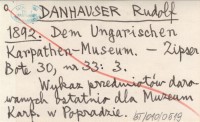 DANHAUSER Rudolf
1892. Dem Ungarischen
Karpathen-Museum. – Zipser
Bote 30, nr 33: 3.
Wykaz przedmiotów daro-
wanych ostatnio dla Muzeum
Karp. w Popradzie.